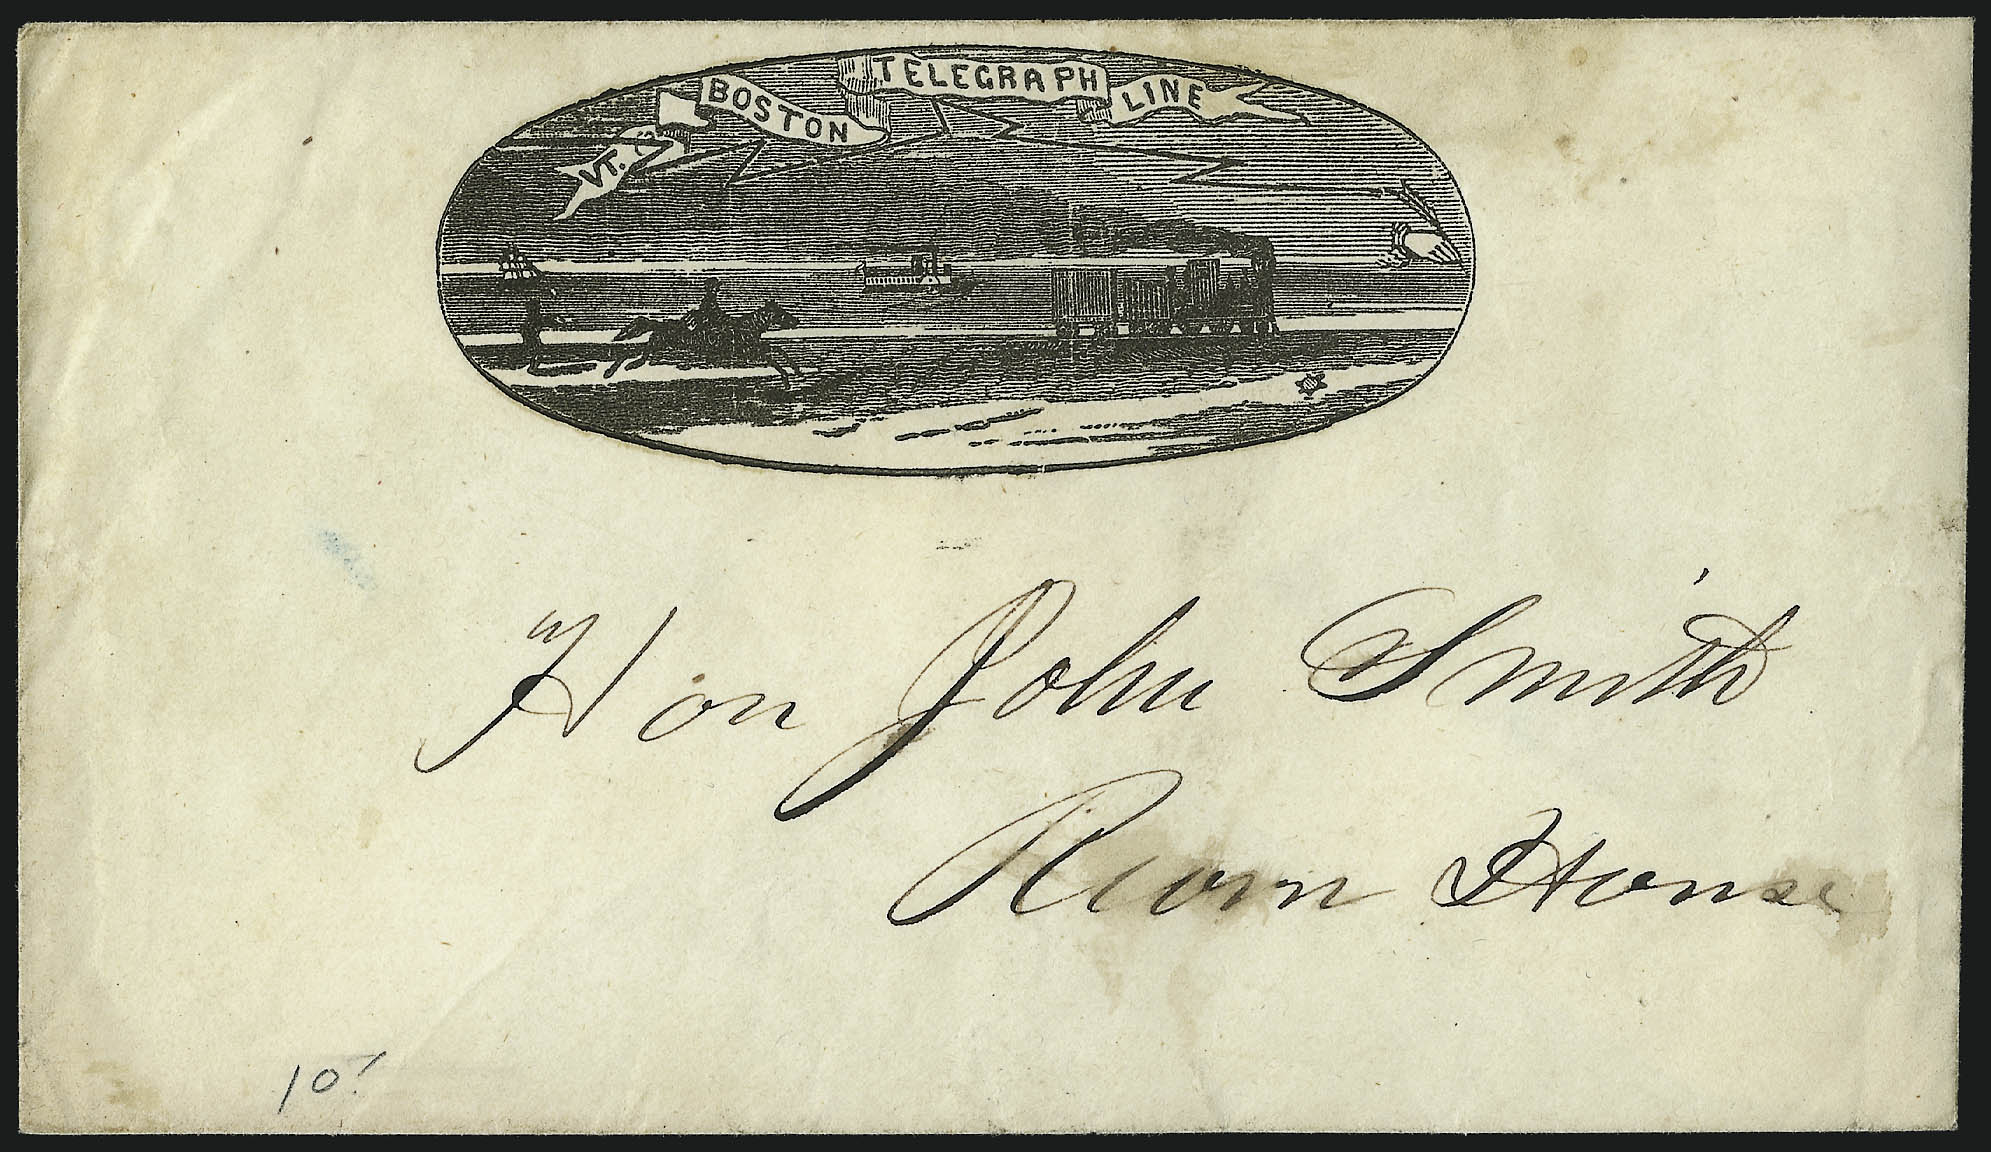 VT. & BOSTON TELEGRAPH LINE
Hon John Smith
House
10